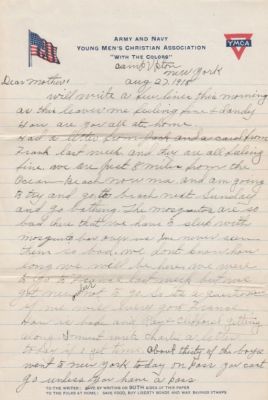 ARMY AND NAVY
YOUNG MEN'S CHRISTIAN ASSOCIATION
"WITH THE COLORS"
YMCA
Camp Upton
New York
Aug 27, 1918
Dear Mother:
will write a few lines this morning
as this leaves me feeling fine & dandy
How are you all at home
Had a letter from Josh and a card from
Frank last week and they are all feeling
fine. we are just 8 miles from the
Ocean Beach now ma and am going
to try and go to beach next Sunday
and go bathing. The mosquitos are so
bad here that we have to sleep with
over us you never seen
them so bad, we dont know how
long we will be here we were
to go to France last week but we
got orders not to go so its a
if we will ever go France
How is and and getting
along I must write a letter
today if I get time about thirty of the boys
went to new york today on pass you cant
go unless you have a pass
TO THE WRITER: SAVE BY WRITING ON BOTH SIDES OF THIS PAPER
TO THE FOLKS AT HOME: SAVE FOOD, BUY LIBERTY BONDS AND WAR SAVINGS STAMPS